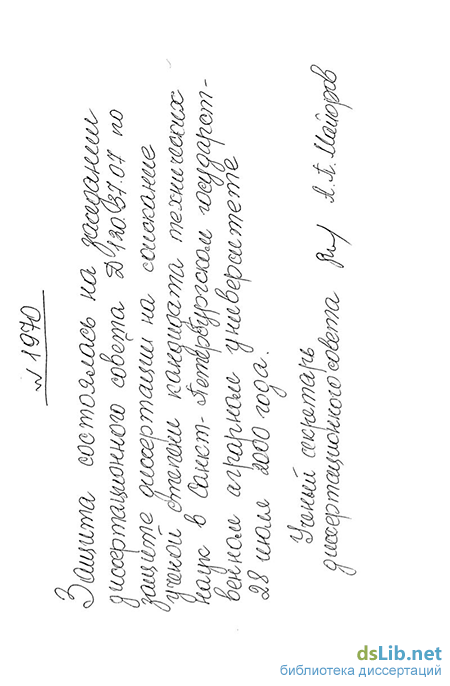 N 1970
Защита состоялась на заседании
диссертационного совета Д 120.37.07 по
защите диссертации на соискание
ученой степени кандидата технических
наук в Санкт-Петербургском государст-
венном аграрном университете
28 июля 2000 года.
Ученый секретарь
диссертационного совета А.А. Майоров
dsLib.net
библиотека диссертаций